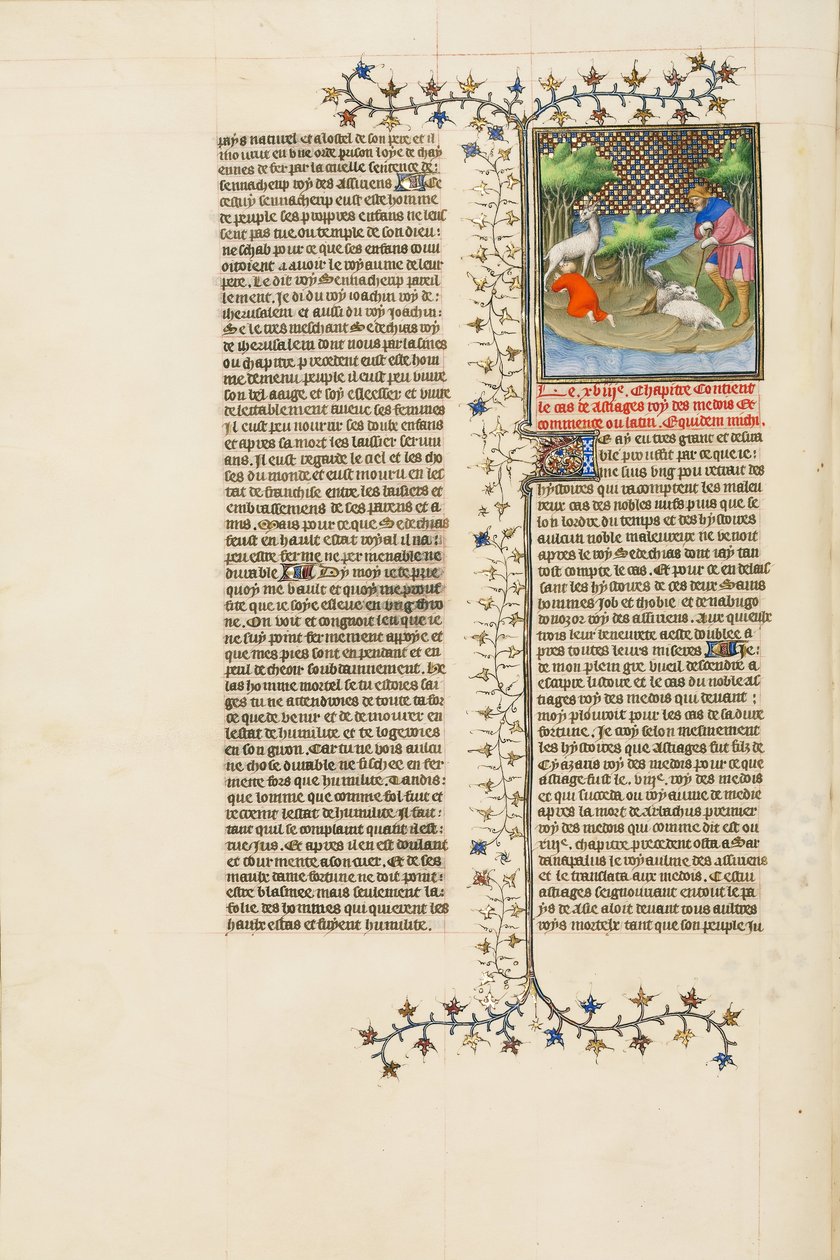 pays naturel et a lostel de son pere et il
mourut en une orde prison loye de chay
ennes de fer par la cruelle sentence de:
sennacherip roy des assiriens Se
cestuy sennacherip eust este homme
de peuple ses propres enfans ne leus
sent pas tue ou temple de son dieu:
neschab pour ce que ses enfans couu
oitoient a auoir le royaume de leur
pere. Le dit roy Sennacherip pareil
lement. Je di du roy ioachin roy de:
iherusalem et aussi du roy joachin:
Se le tres meschant Sedechias roy
de iherusalem dont nous parlasmes
ou chapitre precedent eust este hom
me de menu peuple il eust peu viure
son bel aaige et soy esleescer et viure
delectablement auecc ses femmes
Il eust peu nourrir ses doulz enfans
et apres sa mort les laissier seruiu
ans. Il eust regarde le ciel et les cho
ses du monde et eust mouru en les
tat de franchise entre les baisiers et
embrassemens de ses parens et a
mis. Mais pour ce que Sedechias
feust en hault estat royal il na:
peu estre ferme ne permenable ne
durable Dy moy ie te prie
quoy me vault et quoy me prouf
fite que ie soye esleue en ung thro
ne. On voit et congnoit len que ie
ne suy point fermement appoye et
que mes pies sont en pendant et en
peril de cheoir soubdainnement. He
las homme mortel se tu estoies sai
ges tu ne attendroies de toute ta for
ce que de venir et de demourer en
lestat de humilite et te logeroies
en son giron. Car tu ne vois aulcu
ne chose durable ne fischee en fer
mete fors que humilite. Tandis:
que lomme que comme fol fuit et
recraint lestat de humilite Il fait:
tant quil se complaint quant il est:
cueius. Et apres il en est doulant
et tourmente a son cuer. Et de ses
maulx dame fortune ne doit point:
estre blasmee mais seulement la:
folie des hommes qui quierent les
haulx estas et fuyent humilite.
Le. xviiie. Chapitre Contient
le cas de Astiages roy des medois Et
commence ou latin. Equidem michi.
E ay eu tres grant et desira
ble prouffit par ce que ie:
me suis ung pou retrait des
hystoires qui racomptent les maleu
reux cas des nobles mis puis que se
lon lordre du temps et des hystoires
aulcun noble maleureux ne venoit
apres le roy Sedechias dont iay tan
tost compte le cas. Et pour ce en delais
sant les hystoires de ces deux Sains
hommes Job et thobie et de nabugo
donozor roy des assiriens. Aux quieulx
trois leur beneurete a este doublee a
pres toutes leurs miseres Je:
de mon plein gre vueil descendre a
escripre listoire et le cas du noble as
tiages roy des medois qui deuant:
moy plouroit pour les cas de sa dure
fortune. Je croy selon mesmement
les hystoires que Astiages fut filz de
Cyazaris roy des medois pour ce que
astiage fust le. viiie. roy des medois
et qui succeda ou royaume de medie
apres la mort de Arbachus premier
roy des medois qui comme dit est ou
xiiie. chapitre precedent osta a Sar
danapalus le royaulme des assiriens
et le translata aux medois. Cestui
astiages seignourant en tout le pa
ys de Asie aloit deuant tous aultres
roys mortelx tant que son peuple iu